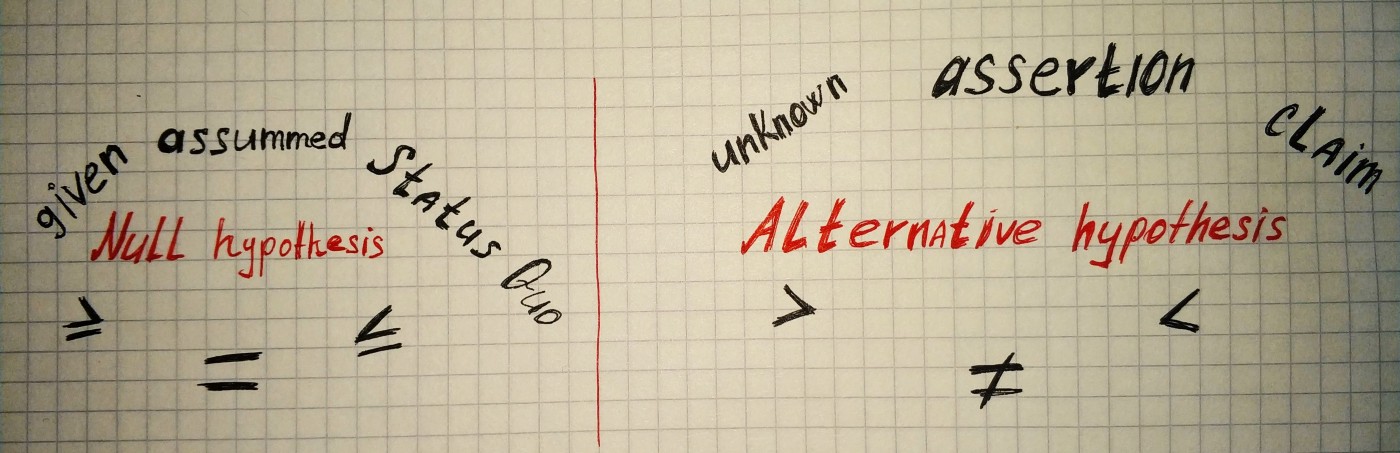 given assummed Status Quo
Null hypothesis
≥ = ≤
unknown assertion claim
Alternative hypothesis
> ≠ <